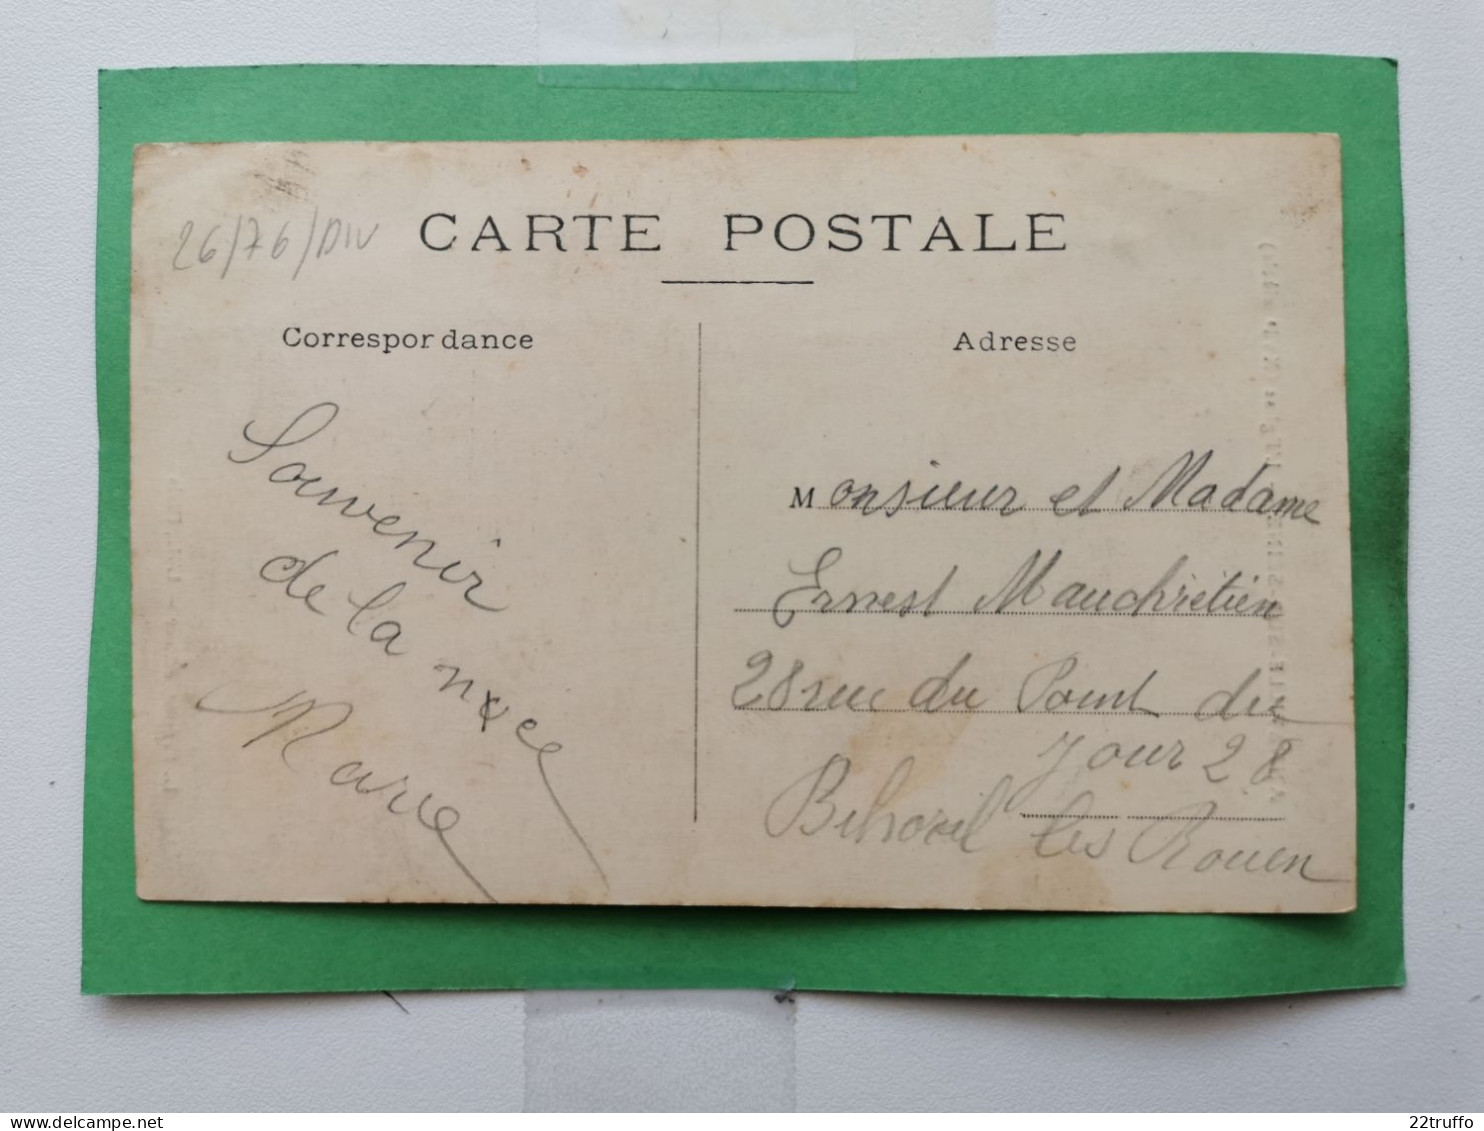 26/76/DIV
CARTE POSTALE
Correspondance
Adresse
Souvenir
de la
Marie
Monsieur et Madame
Ernest Mauchrétien
28 rue du Point du
Jour 28
Bihorel les Rouen
http://www.delcampe.net
22truffo